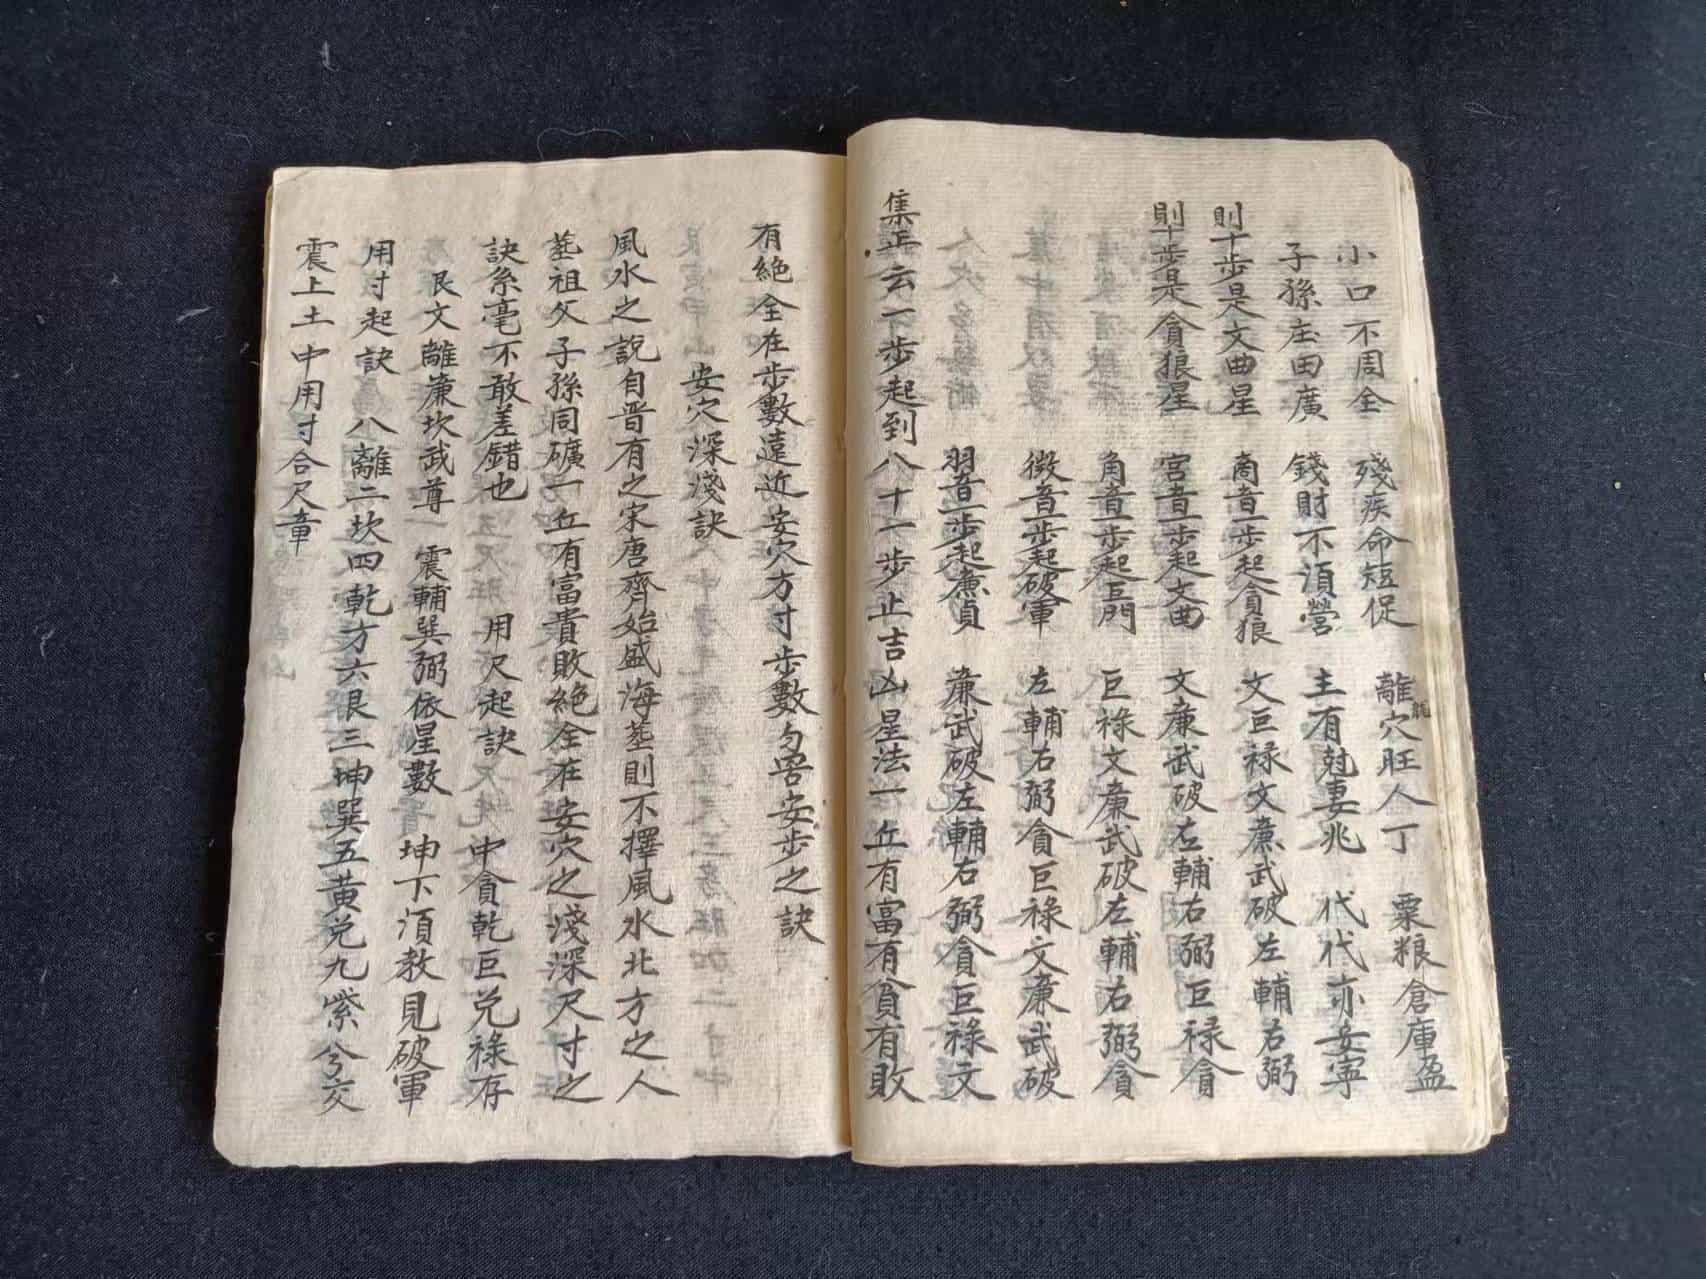 小口不周全 殘疾命短促 離穴旺人丁 粟粮倉庫盈
子孫庄田廣 錢財不須營 主有尅妻兆 代代亦安寧
則十步是文曲星 商音一步起貪狼 文巨祿文廉武破左輔右弼
則十步是貪狼星 宮音一步起文曲 文廉武破左輔右弼巨祿貪
角音一步起巨門 巨祿文廉武破左輔右弼貪
徵音一步起破軍 左輔右弼貪巨祿文廉武破
羽音一步起廉貞 廉武破左輔右弼貪巨祿文
集正云一步起到八十一步止吉凶星法一丘有富有貧有敗
有絕全在步數遠近安穴方寸步數勿畧安步之訣
安穴深淺訣
風水之說自晋有之宋唐齊始盛海葬則不擇風水北方之人
葬祖父子孫同礦一丘有富貴敗絕全在安穴之淺深尺寸之
訣糸毫不敢差錯也 用尺起訣 中貪乾巨兌祿存
艮文離廉坎武尊 震輔巽弼依星數 坤下須教見破軍
用寸起訣 八離二坎四乾方六艮三坤巽五黄兌九紫兮交
震上土中用寸合尺章